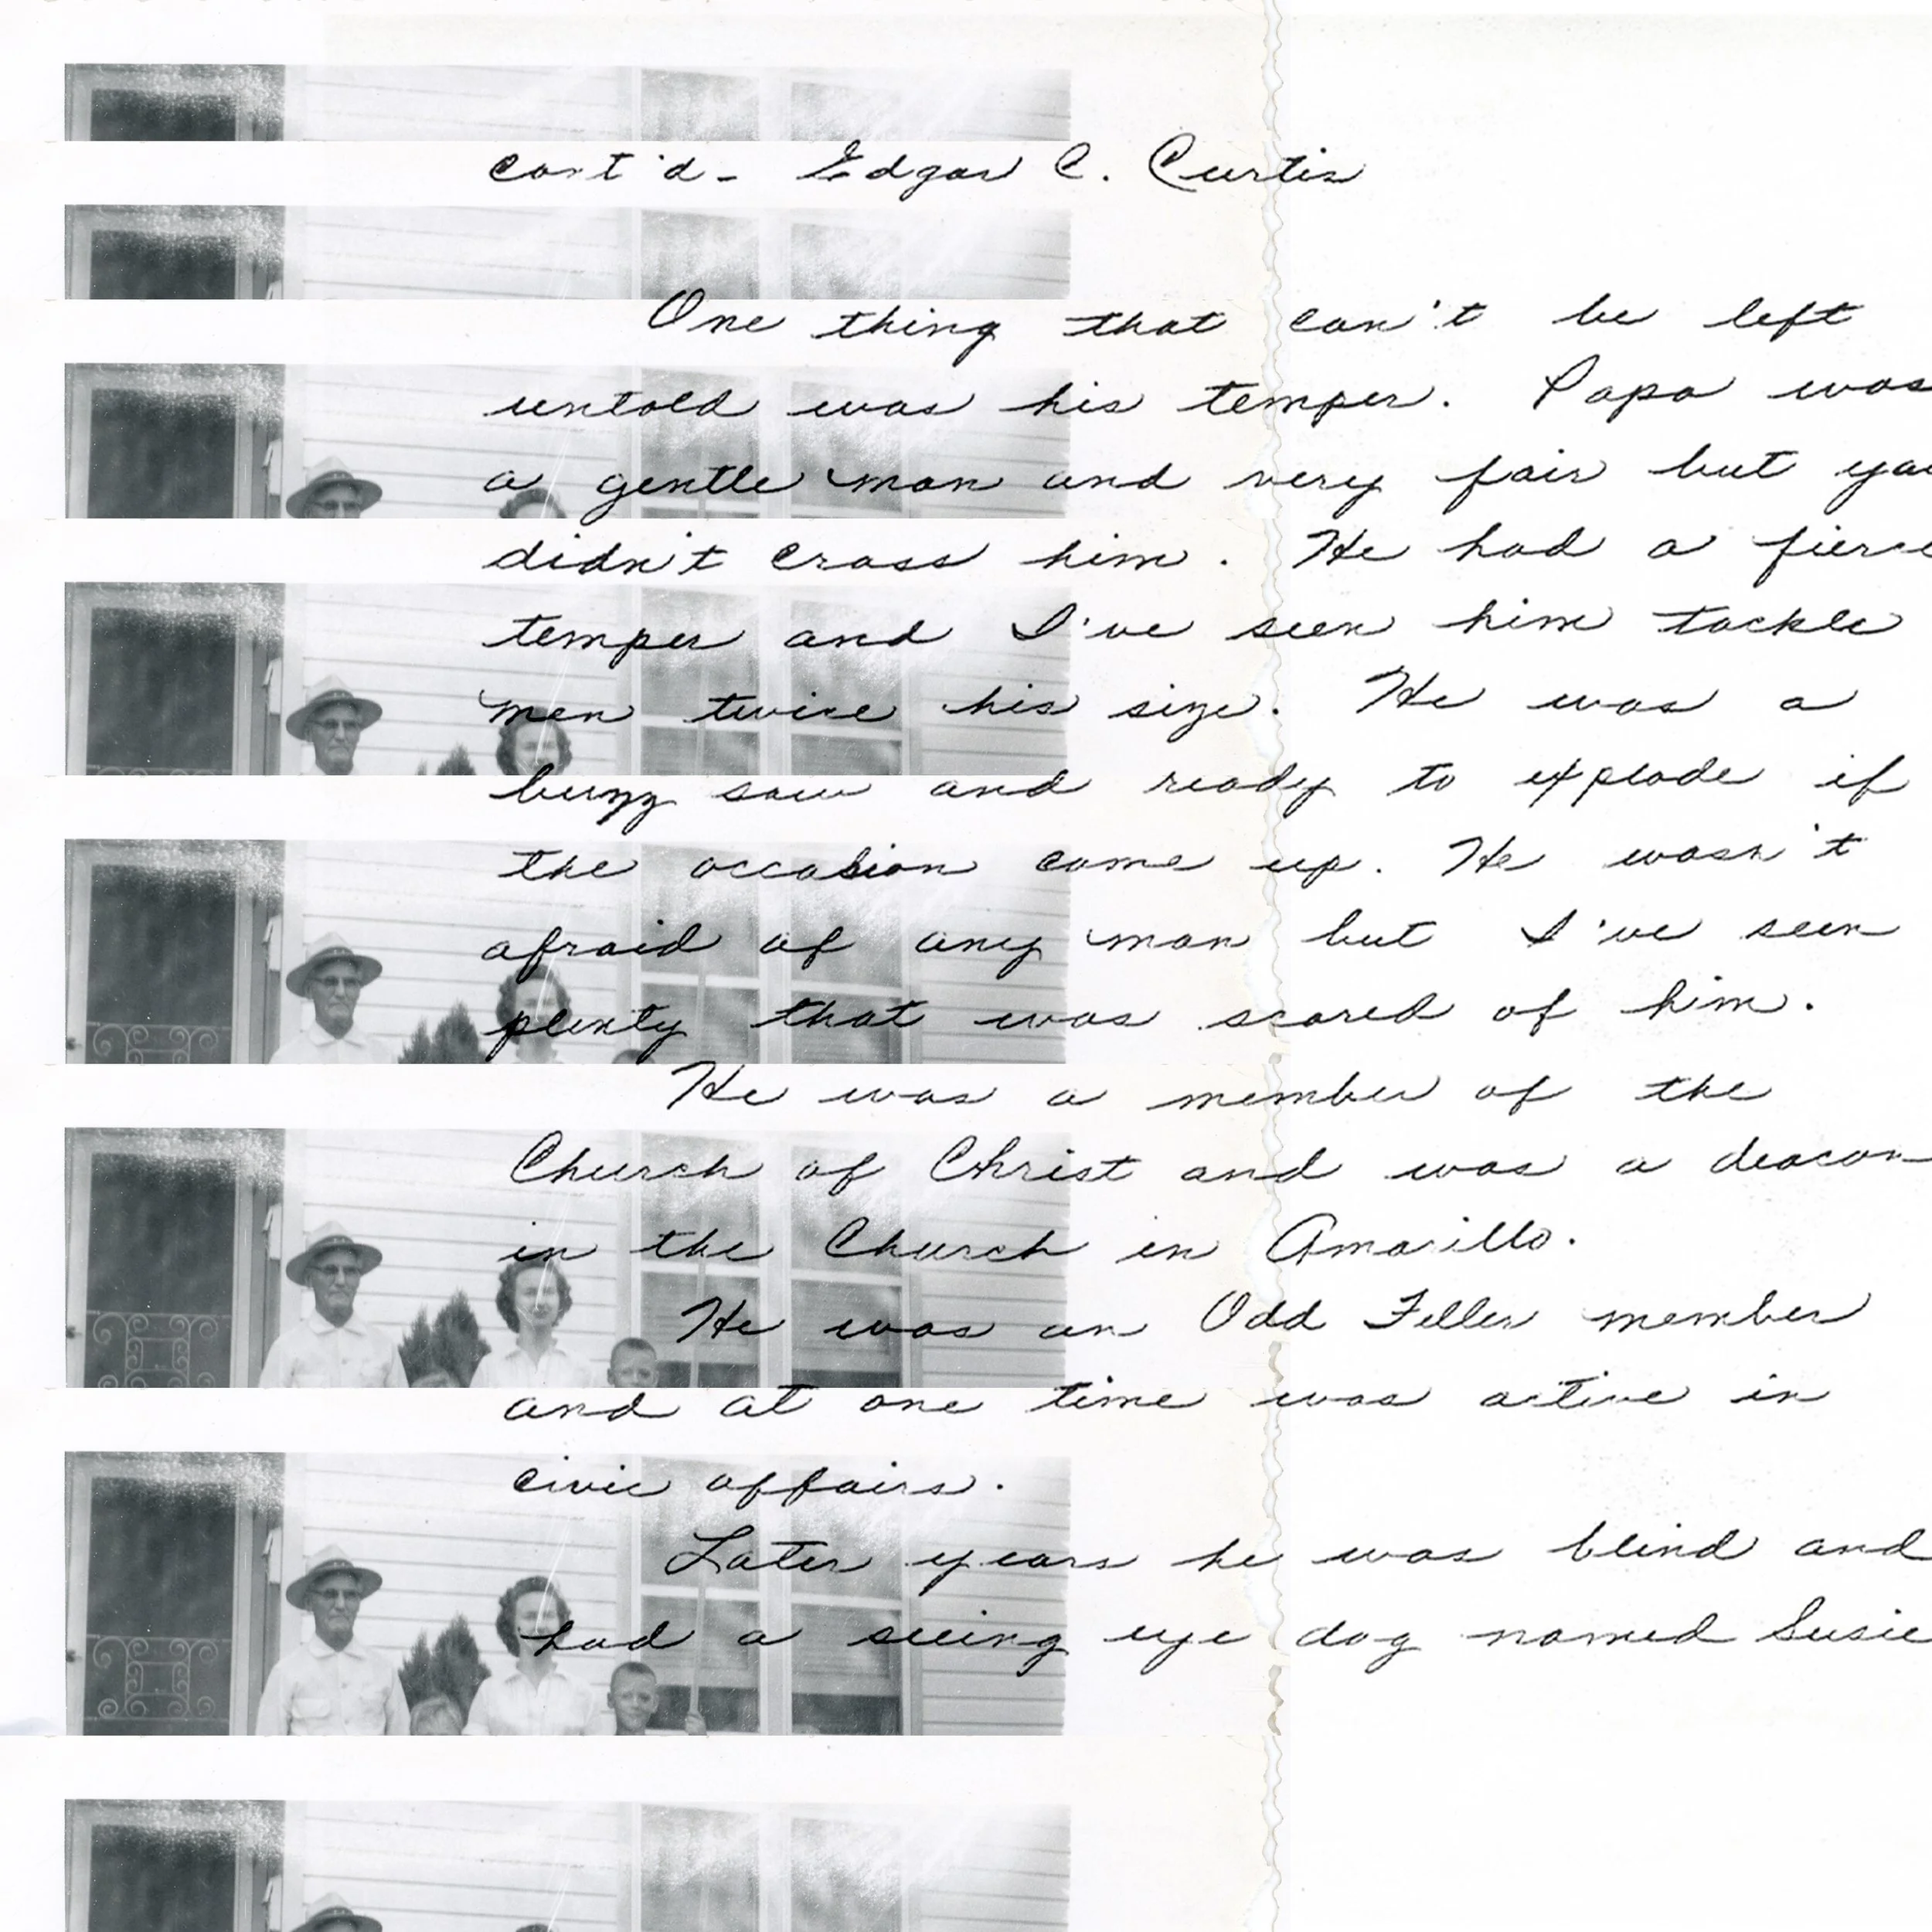 cont'd - Edgar C. Curtis
One thing that can't be left
untold was his temper. Papa was
a gentle man and very fair but you
didn't cross him. He had a fierce
temper and I've seen him tackle
men twice his size. He was a
buzz saw and ready to explode if
the occasion came up. He wasn't
afraid of any man but I've seen
plenty that was scared of him.
He was a member of the
Church of Christ and was a deacon
in the Church in Amarillo.
He was an Odd Feller member
and at one time was active in
civic affairs.
Later years he was blind and
had a seeing eye dog named Susie